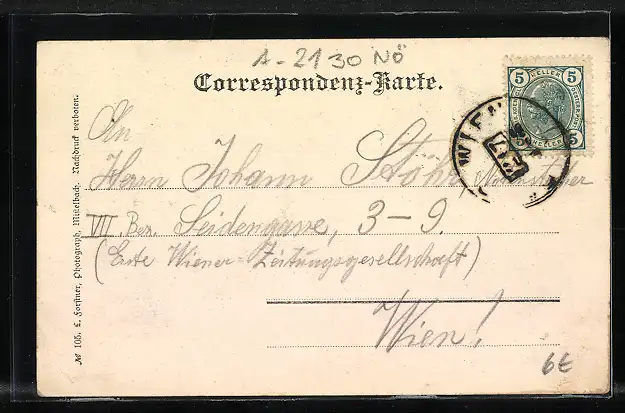 A-2130 NÖ
Correspondenz-Karte.
An
Herrn Johann Stöhr
VII. Bez. Seidengasse, 3-9.
(Erste Wiener-Zeitungsgesellschaft)
Wien!
6€
5 HELLER 5
5 HELLER 5
WIEN
№ 105. L. Forstner, Photograph, Mittelbach. Nachdruck verboten.